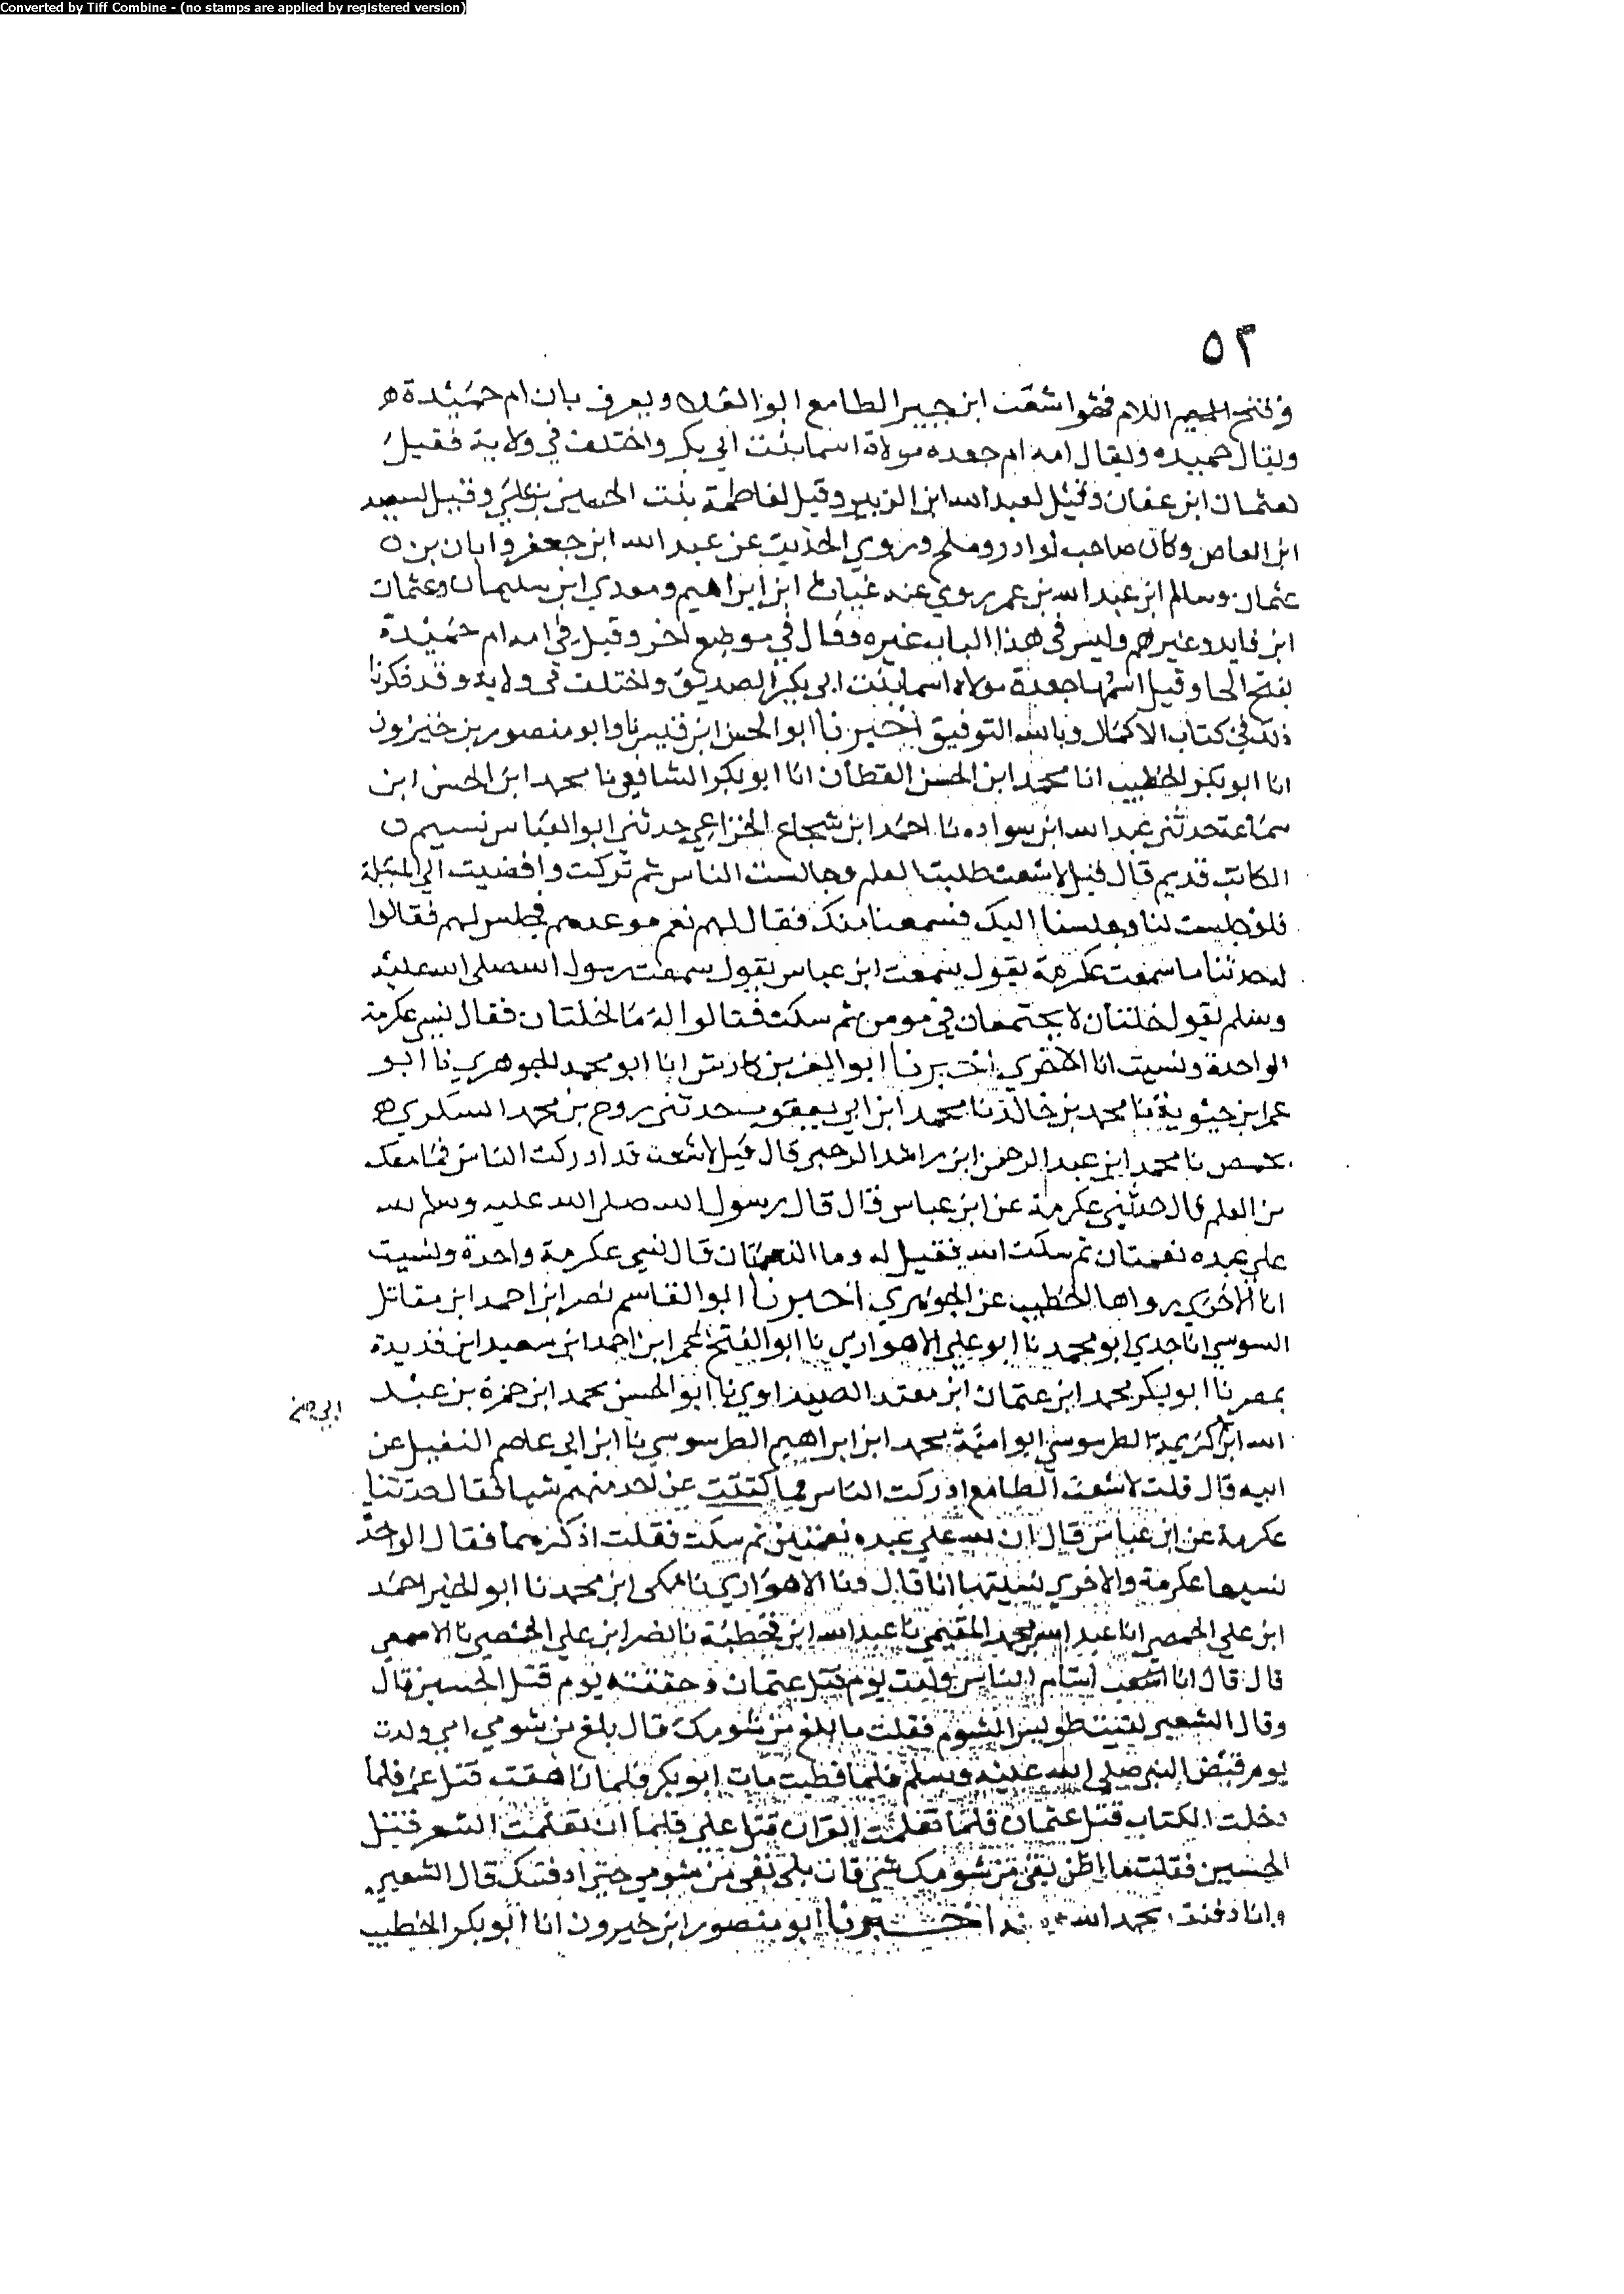 Converted by Tiff Combine - (no stamps are applied by registered version)
٥٣
وفتح الميم اللام فهو اشعث ابن جبير الطامع ابو العلا ويعرف بابن ام حميدة ه
ويقال حميده ويقال امه ام جعده مولاة اسما بنت ابي بكر واختلف في ولاية فقيل
لعثمان ابن عفان وقيل لعبد الله ابن الزبير وقيل لفاطمة بنت الحسين بن علي وقيل لسعيد
ابن العاص وكان صاحب نوادر وملح وروي الحديث عن عبد الله ابن جعفر وابان بن ن
عثمان وسالم ابن عبد الله بن عمر روي عنه غياث ابن ابراهيم ومعدي ابن سليمان وعثمان
ابن فايد وغيرهم وليس في هذا الباب غيره فقال في موضع اخر وقيل في امه ام حميدة
بفتح الحا وقيل اسمها جعدة مولاة اسما بنت ابي بكر الصديق واختلف في ولايه وقد ذكرنا
ذلك في كتاب الاكمال وبالله التوفيق اخبرنا ابو الحسن ابن قبيس نا وابو منصور بن خيرون
انا ابو بكر الخطيب انا محمد ابن الحسن القطان انا ابو بكر الشافعي نا محمد ابن الحسن ابن
سماعة حدثني عبد الله ابن سواده نا احمد ابن شجاع الخزاعي حدثني ابو العباس نسيم ن
الكاتب قديم قال قيل لاشعث طلبت العلم وجالست الناس ثم تركت وافضيت الي المسلة
فلو جلست لنا وجلسنا اليك فسمعنا منك فقال لهم نعم موعدهم فجلس لهم فقالوا
له حدثنا ما سمعت عكرمة يقول سمعت ابن عباس يقول سمعت رسول الله صلى الله عليه
وسلم يقول خلتان لا يجتمعان في مومن ثم سكت فقالوا له ما الخلتان فقال نسي عكرمة
الواحدة ونسيت انا الاخري اخبرنا ابو العز بن كادش انا ابو محمد الجوهري نا ابو
عمر ابن حيوية نا محمد بن خالد نا محمد ابن ابي يعقوب حدثني روح بن محمد السكري ه
بحمص نا محمد ابن عبد الرحمن ابن الرحبي قال قيل لاشعث قد ادركت الناس فما معك
من العلم قال حدثني عكرمة عن ابن عباس قال قال رسول الله صلى الله عليه وسلم لله
على عبده نعمتان ثم سكت الله فقيل له وما النعمتان قال نسي عكرمة واحدة ونسيت
انا الاخري رواها الخطيب عن الجوهري اخبرنا ابو القاسم نصر ابن احمد ابن مقاتل
السوسي انا جدي ابو محمد نا ابو علي الاهوازي نا ابو الفتح محمد ابن احمد ابن سعيد ابن فديدة
بمصر نا ابو بكر محمد ابن عثمان ابن معتد الصيداوي نا ابو الحسن محمد ابن حمزة بن عبد
الله ابن ابي كريمة الطرسوسي ابو امية محمد ابن ابراهيم الطرسوسي نا ابن ابي عاصم النبيل عن
ابيه قال قلت لاشعث الطامع ادركت الناس فما كتبت عن احد منهم شيا فقال حدثنا
عكرمة عن ابن عباس قال ان لله على عبده نعمتين ثم سكت فقلت اذكرهما فقال الواحدة
نسيها عكرمة والاخري نسيتها انا قال ونا الاهوازي نا مكي ابن محمد نا ابو الخير احمد
ابن علي الحمصي انا عبد الله بن محمد المقيمي نا عبد الله ابن قحطبة نا نصر ابن علي الجهضمي نا الاصمعي
قال قال انا اشعب اشام الناس ولدت يوم قتل عثمان وختنته يوم قتل الحسين قال
وقال الشعبي لقيت طويس الشوم فقلت ما بلغ من شومك قال بلغ من شومي اني ولدت
يوم قبض النبي صلى الله عليه وسلم فلما فطمت مات ابو بكر فلما ناهقت قتل عمر فلما
دخلت الكتاب قتل عثمان فلما تعلمت القران قتل علي فلما ان تعلمت الشعر قتل
الحسين فقلت ما اظن بقي من شومك شي قال بلى بقي من شومي حتى ادفنك قال الشعبي
وانا دفنته بحمد الله اخبرنا ابو منصور ابن خيرون انا ابو بكر الخطيب